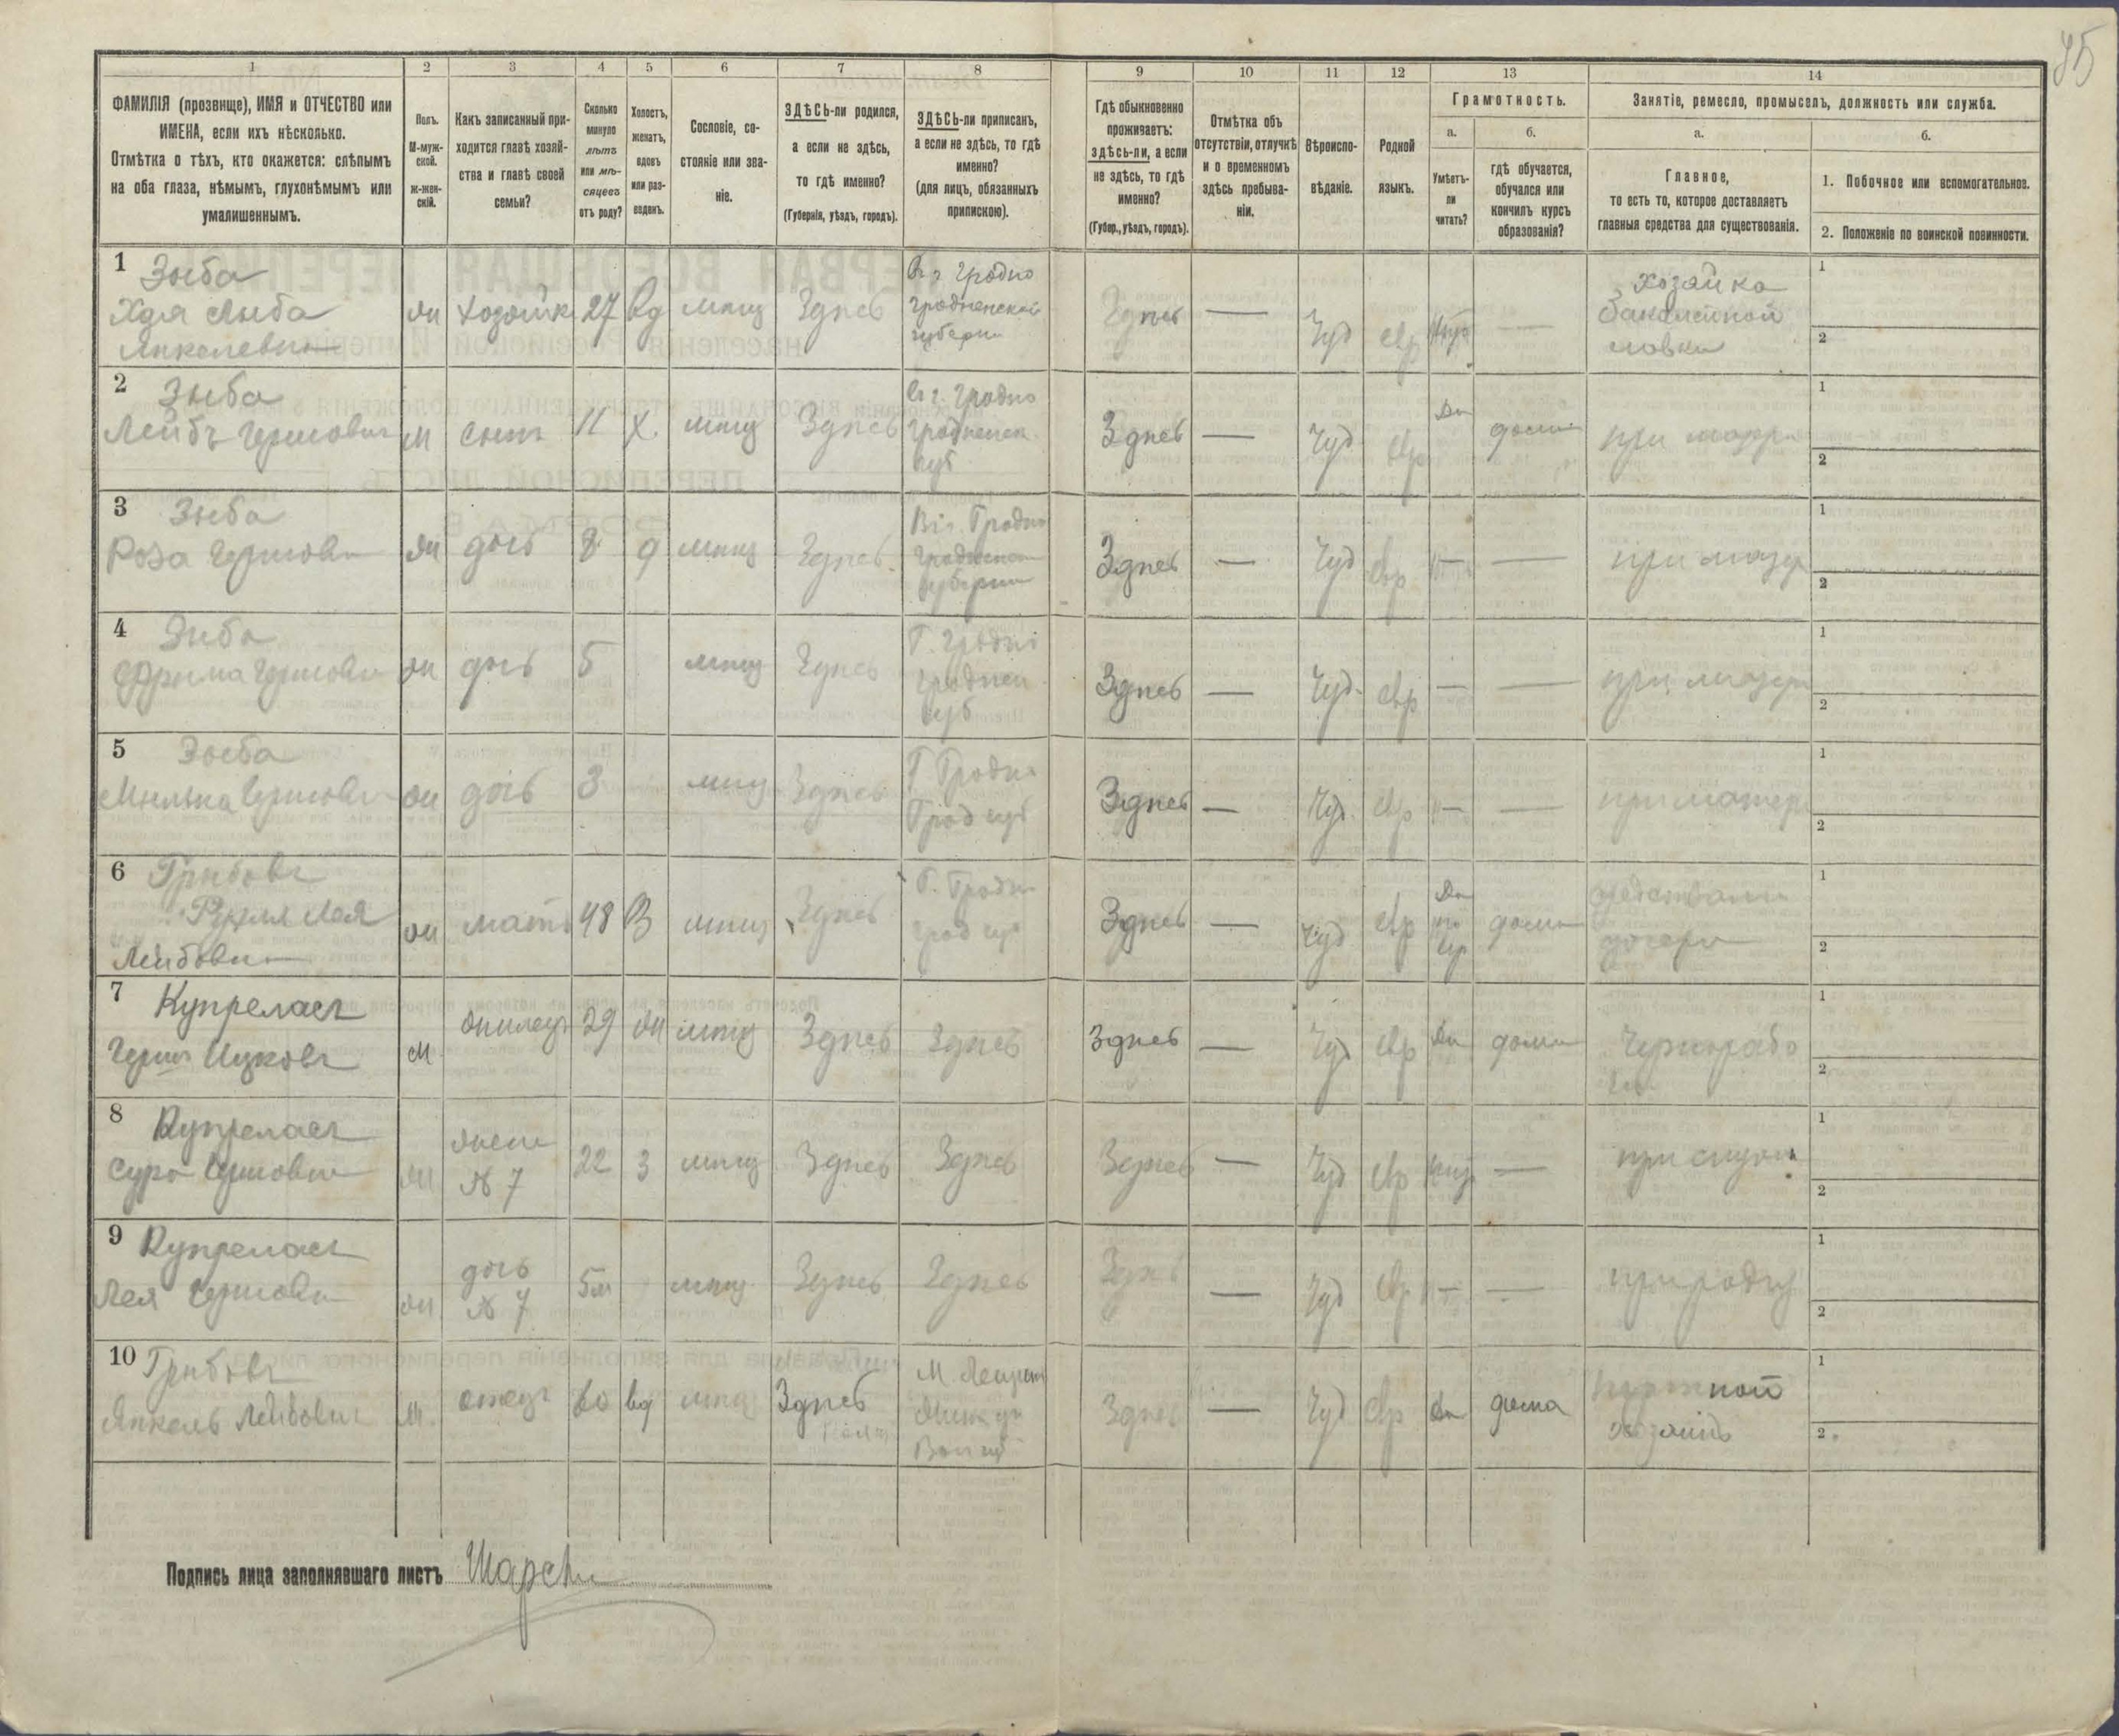 85
1
2
3
4
5
6
7
8
9
10
11
12
13
14
ФАМИЛІЯ (прозвище), ИМЯ и ОТЧЕСТВО или
ИМЕНА, если ихъ нѣсколько.
Отмѣтка о тѣхъ, кто окажется: слѣпымъ
на оба глаза, нѣмымъ, глухонѣмымъ или
умалишеннымъ.
Полъ.
М-муж-
ской.
ж-жен-
скій.
Какъ записанный при-
ходится главѣ хозяй-
ства и главѣ своей
семьи?
Сколько
минуло
лѣтъ
или мѣ-
сяцевъ
отъ роду?
Холостъ,
женатъ,
вдовъ
или раз-
веденъ.
Сословіе, со-
стояніе или зва-
ніе.
ЗДѢСЬ-ли родился,
а если не здѣсь,
то гдѣ именно?
(Губернія, уѣздъ, городъ).
ЗДѢСЬ-ли приписанъ,
а если не здѣсь, то гдѣ
именно?
(для лицъ, обязанныхъ
припискою).
Гдѣ обыкновенно
проживаетъ:
здѣсь-ли, а если
не здѣсь, то гдѣ
именно?
(Губер., уѣздъ, городъ).
Отмѣтка объ
отсутствіи, отлучкѣ
и о временномъ
здѣсь пребыва-
ніи.
Вѣроиспо-
вѣданіе.
Родной
языкъ.
Грамотность.
а.
б.
Умѣетъ-
ли
читать?
гдѣ обучается,
обучался или
кончилъ курсъ
образованія?
Занятіе, ремесло, промыселъ, должность или служба.
а.
б.
Главное,
то есть то, которое доставляетъ
главныя средства для существованія.
1. Побочное или вспомогательное.
2. Положеніе по воинской повинности.
1 Зыба
Хая Лыба
Янкелевна
ж хозяйк 27 вд мѣщ Здѣсь
Въ г. Гродно
Гродненской
губерніи
Здѣсь — Іуд евр —
Хозяйка
бакалейной
лавки
1
2
2 Зыба
Лейбъ Гершовичъ
м сынъ 11 х. мѣщ Здѣсь
Въ г. Гродно
Гродненск
губ
Здѣсь — Іуд евр Да дома при матери
1
2
3 Зыба
Роза Гершовн
ж дочь 8 д мѣщ Здѣсь
Въ г. Гродно
Гродненск
губерніи
Здѣсь — Іуд евр — при матер
1
2
4 Зыба
Фрума Гершовн
ж дочь 5 мѣщ Здѣсь
Г. Гродно
Гроднен
губ
Здѣсь — Іуд евр — — при матери
1
2
5 Зыба
Гершовн
ж дочь 3 мѣщ Здѣсь
Г. Гродно
Грод губ
Здѣсь — Іуд евр — — при матери
1
2
6
Лея
Лейбовна
ж мать 48 В мѣщ Здѣсь
Г. Гродно
Грод губ
Здѣсь — Іуд евр Да дома
средствами
дочери
1
2
7 Купреласъ
Гершъ Ицковъ
м жилецъ 29 ж мѣщ Здѣсь Здѣсь
Здѣсь — Іуд евр Да дома
Чернорабо
1
2
8 Купреласъ
Сура Гершовна
ж жена
№ 7
22 З мѣщ Здѣсь Здѣсь
Здѣсь — Іуд евр —
1
2
9 Купреласъ
Лея Гершовн
ж дочь
№ 7
5м мѣщ Здѣсь Здѣсь
Здѣсь — Іуд евр — — при родит
1
2
10
Янкель Лейбовичъ
м. отецъ 60 вд мѣщ Здѣсь
Здѣсь — Іуд евр Да дома
1
2
Подпись лица заполнявшаго листъ